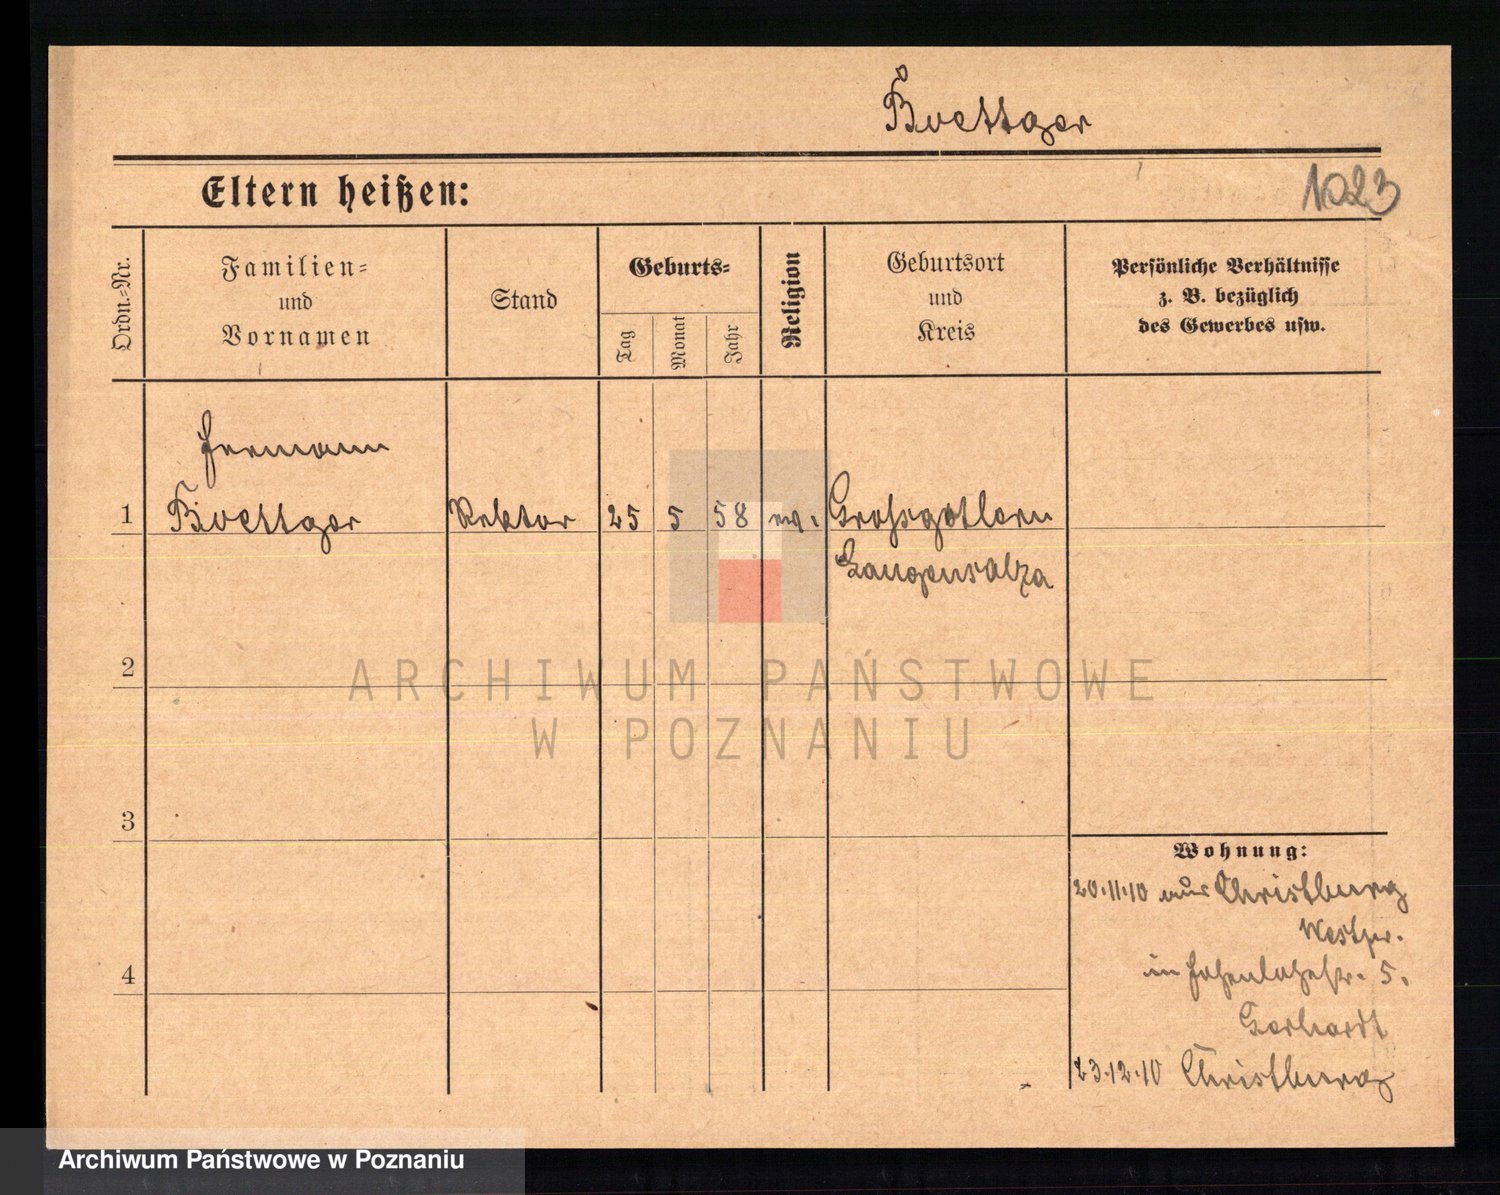 Boettger
Eltern heißen:
1023
Ordn.-Nr.
Familien-
und
Vornamen
Stand
Geburts-
Tag
Monat
Jahr
Religion
Geburtsort
und
Kreis
Persönliche Verhältnisse
z. B. bezüglich
des Gewerbes usw.
Hermann
1 Boettger Rektor 25 5 58 ev. Grossgottern
Langensalza
2
ARCHIWUM PAŃSTWOWE
W POZNANIU
3
Wohnung:
20.11.10 aus Christburg
Westpr.
in Hohenlohestr. 5.
4
Gerhardt
23.12.10 Christburg
Archiwum Państwowe w Poznaniu